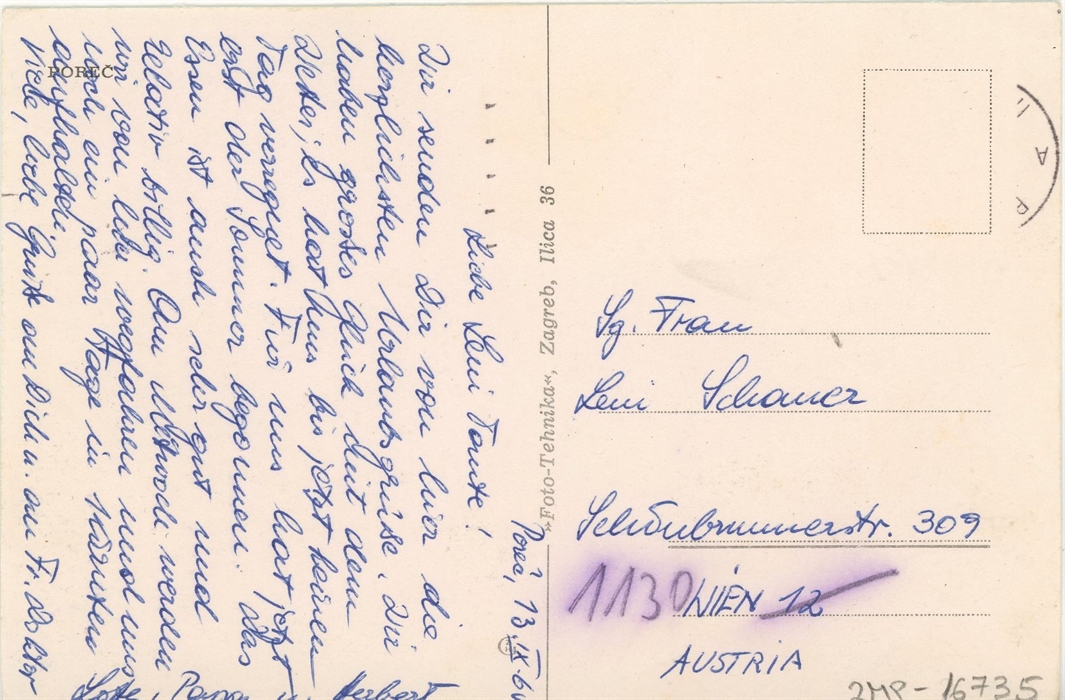 POREČ
Poreč, 13.IX.6
Liebe Leni Tante!
Wir senden Dir von hier die
herzlichsten Urlaubsgrüsse. Wir
haben grosses Glück mit dem
Wetter, es hat uns bis jetzt keinen
Tag verregnet. Für uns hat jetzt
erst der Sommer begonnen. Das
Essen ist auch sehr gut und
relativ billig. Am Mittwoch werden
wir von hier wegfahren und uns
noch ein paar Tage in Kärnten
aufhalten.
Viele, liebe Grüße an Dich u. an Fr. Doktor
Lotte, Papa u. Herbert
"Foto-Tehnika", Zagreb, Ilica 36
Sg. Frau
Leni Schauer
Schönbrunnerstr. 309
1130 WIEN 12
AUSTRIA
2MP-16735